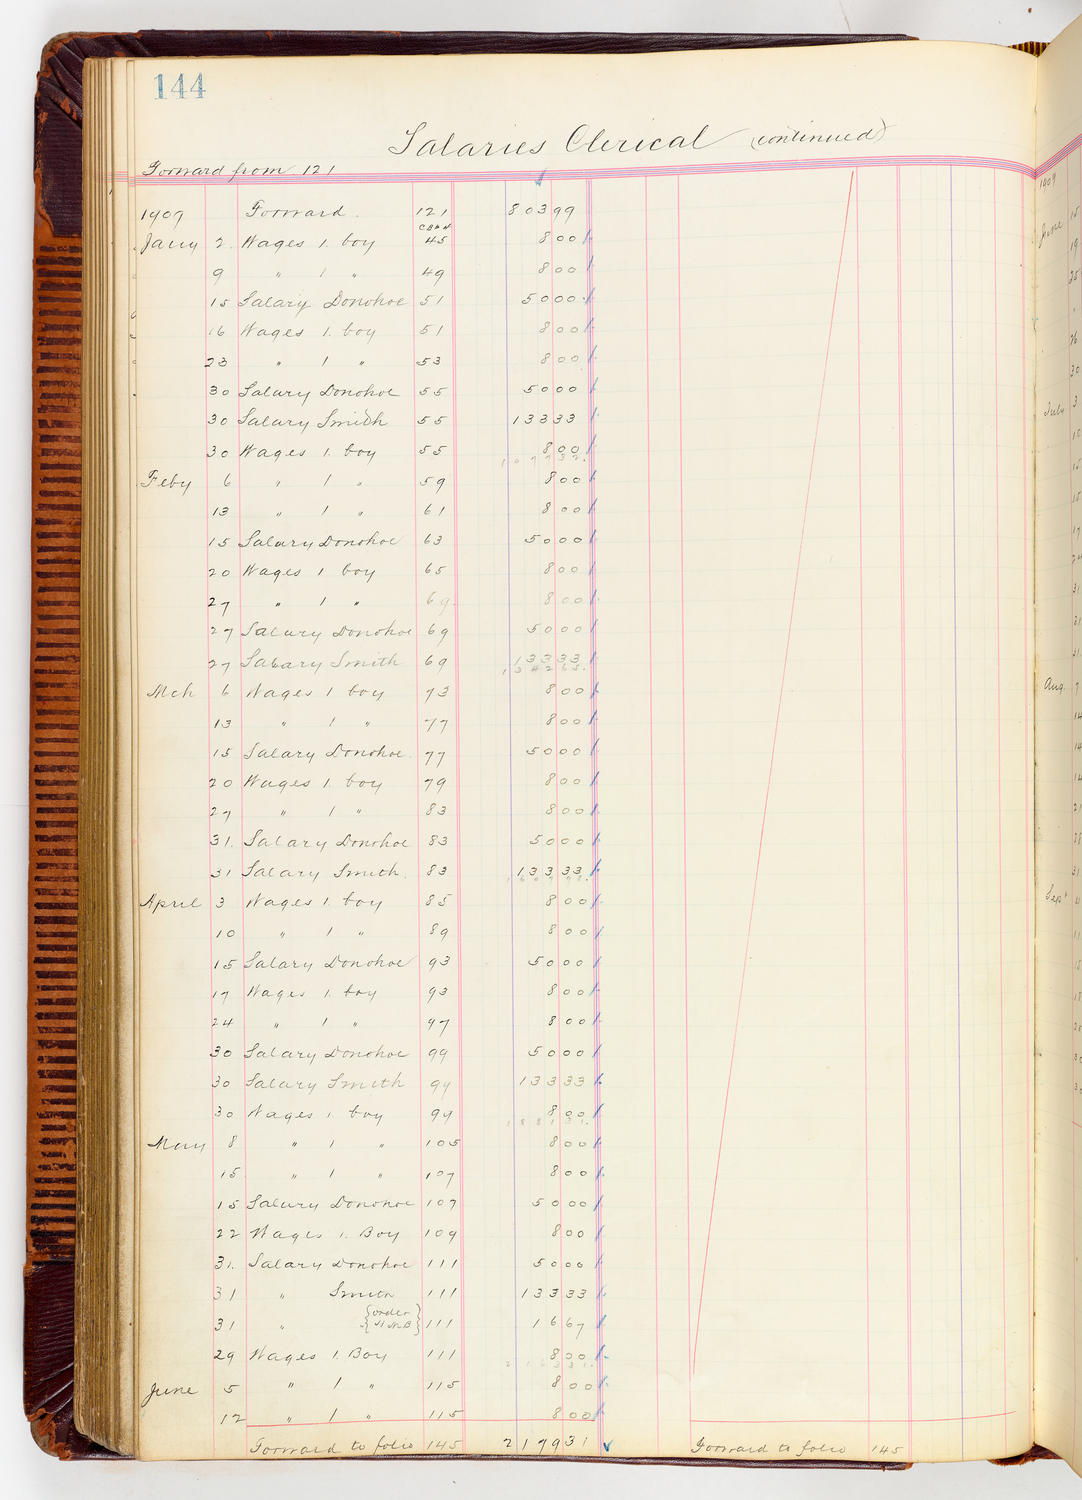 144
Salaries Clerical (continued)
Forward from 121
1907 Forward. 121 803 99
CB No 4
Jany 2. Wages 1. boy 45 8 00
9 " 1 " 49 8 00
15 Salary Donohoe 51 50 00
16 Wages 1. boy 51 8 00
23 " 1 " 53 8 00
30 Salary Donohoe 55 50 00
30 Salary Smith 55 133 33
30 Wages 1. boy 55 8 00
1077 32
Feby 6 " 1 " 59 8 00
13 " 1 " 61 8 00
15 Salary Donohoe 63 50 00
20 Wages 1 boy 65 8 00
27 " 1 " 69 8 00
27 Salary Donohoe 69 50 00
27 Salary Smith 69 133 33
1342 65
Mch 6 Wages 1 boy 73 8 00
13 " 1 " 77 8 00
15 Salary Donohoe 77 50 00
20 Wages 1. boy 79 8 00
27 " 1 " 83 8 00
31. Salary Donohoe 83 50 00
31 Salary Smith. 83 133 33
April 3 Wages 1. boy 85 8 00
10 " 1 " 89 8 00
15 Salary Donohoe 93 50 00
17 Wages 1. boy 93 8 00
24 " 1 " 97 8 00
30 Salary Donohoe 99 50 00
30 Salary Smith 99 133 33
30 Wages 1 boy 99 8 00
May 8 " 1 " 105 8 00
15 " 1 " 107 8 00
15 Salary Donohoe 107 50 00
22 Wages 1. Boy 109 8 00
31. Salary Donohoe 111 50 00
31 " Smith 111 133 33
31 " {order} 111 16 67
29 Wages 1. Boy 111 8 00
June 5 " 1 " 115 8 00
12 " 1 " 115 8 00
Forward to folio 145 2179 31
Forward to folio 145
1907
June
July
Aug.
Sept